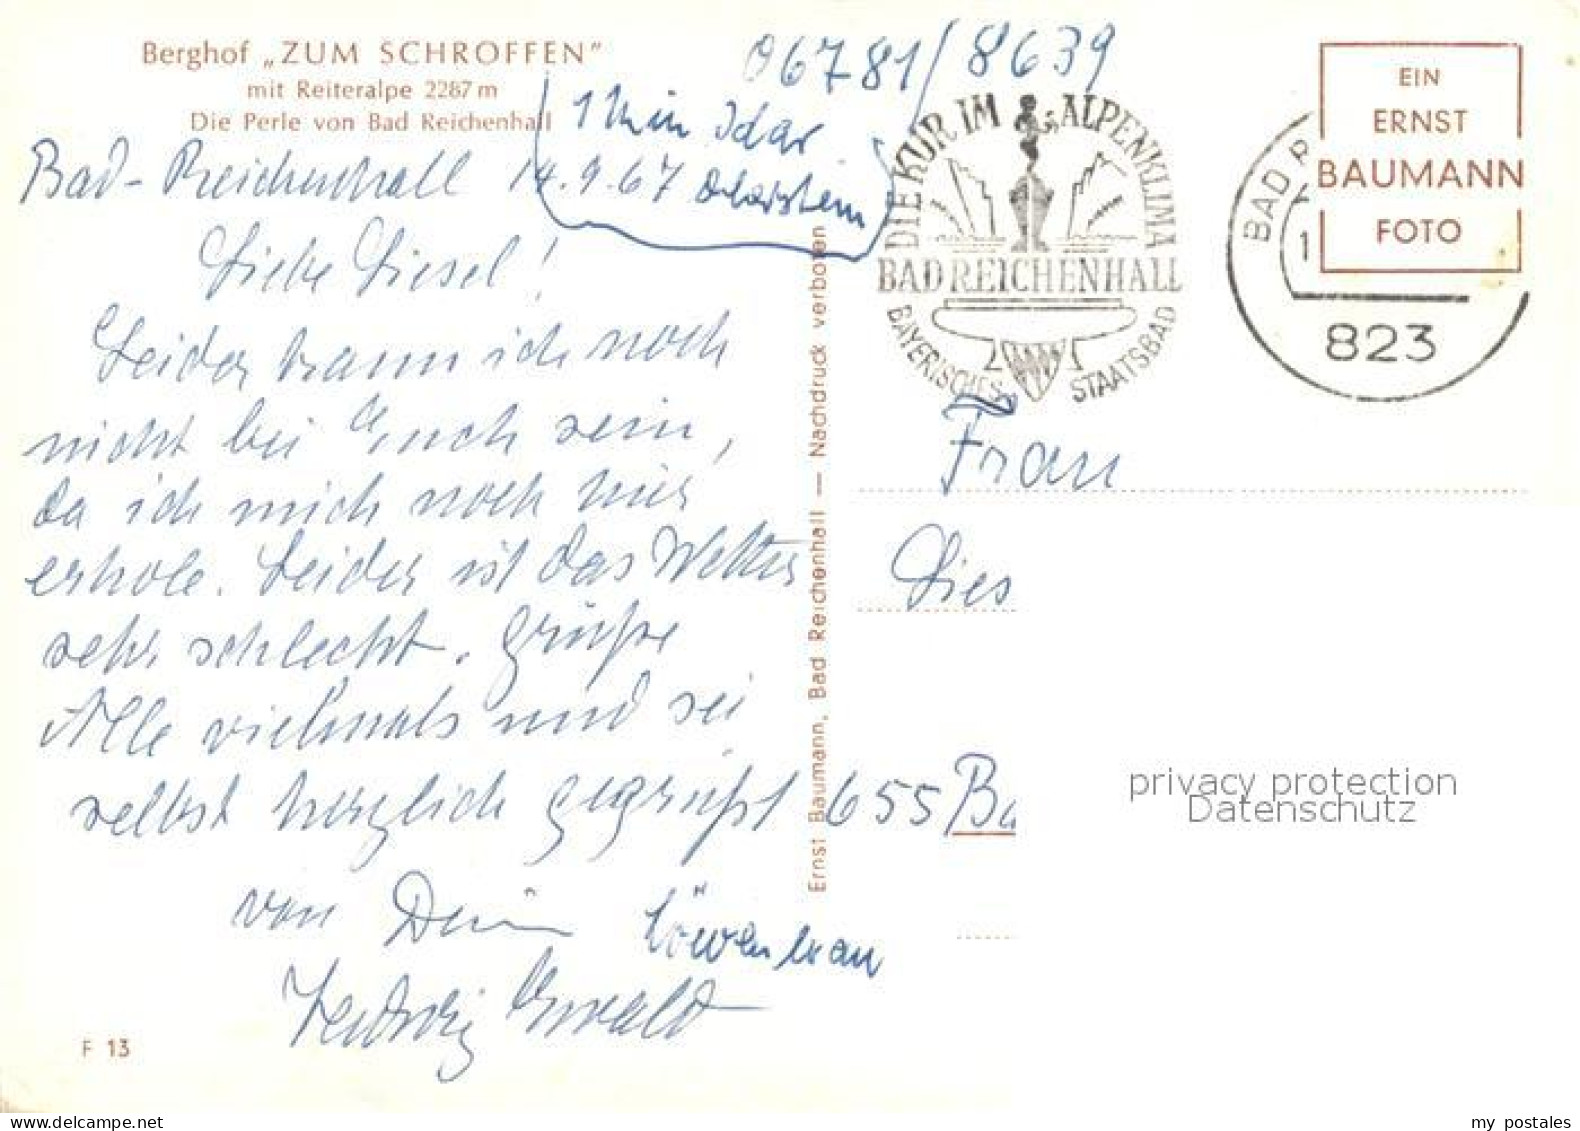 Berghof „ZUM SCHROFFEN"
mit Reiteralpe 2287 m
Die Perle von Bad Reichenhall
06781/8639
1 Min Idar
Oberstein
Bad-Reichenhall 14.9.67
Liebe Liesel!
Leider kann ich noch
nicht bei Euch sein,
da ich mich noch hier
erhole. Leider ist das Wetter
sehr schlecht. Grüße
Alle vielmals und sei
selbst herzlich gegrüßt
von Dein
Ludwig Ewald
F 13
Ernst Baumann, Bad Reichenhall — Nachdruck verboten
DIE KUR IM ALPENKLIMA
BAD REICHENHALL
BAYERISCHES STAATSBAD
BAD R
1
823
EIN
ERNST
BAUMANN
FOTO
Frau
Lies
655 Ba
privacy protection
Datenschutz
my postales